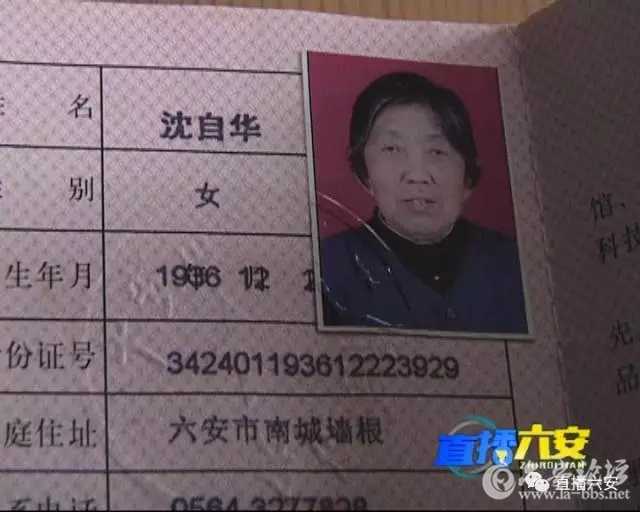 名 沈自华
别 女
生年月 1936 12
份证号 342401193612223929
庭住址 六安市南城墙根
馆、
科技
先
品
直播六安
ZHIBOLUAN
直播六安
www.la-bbs.net